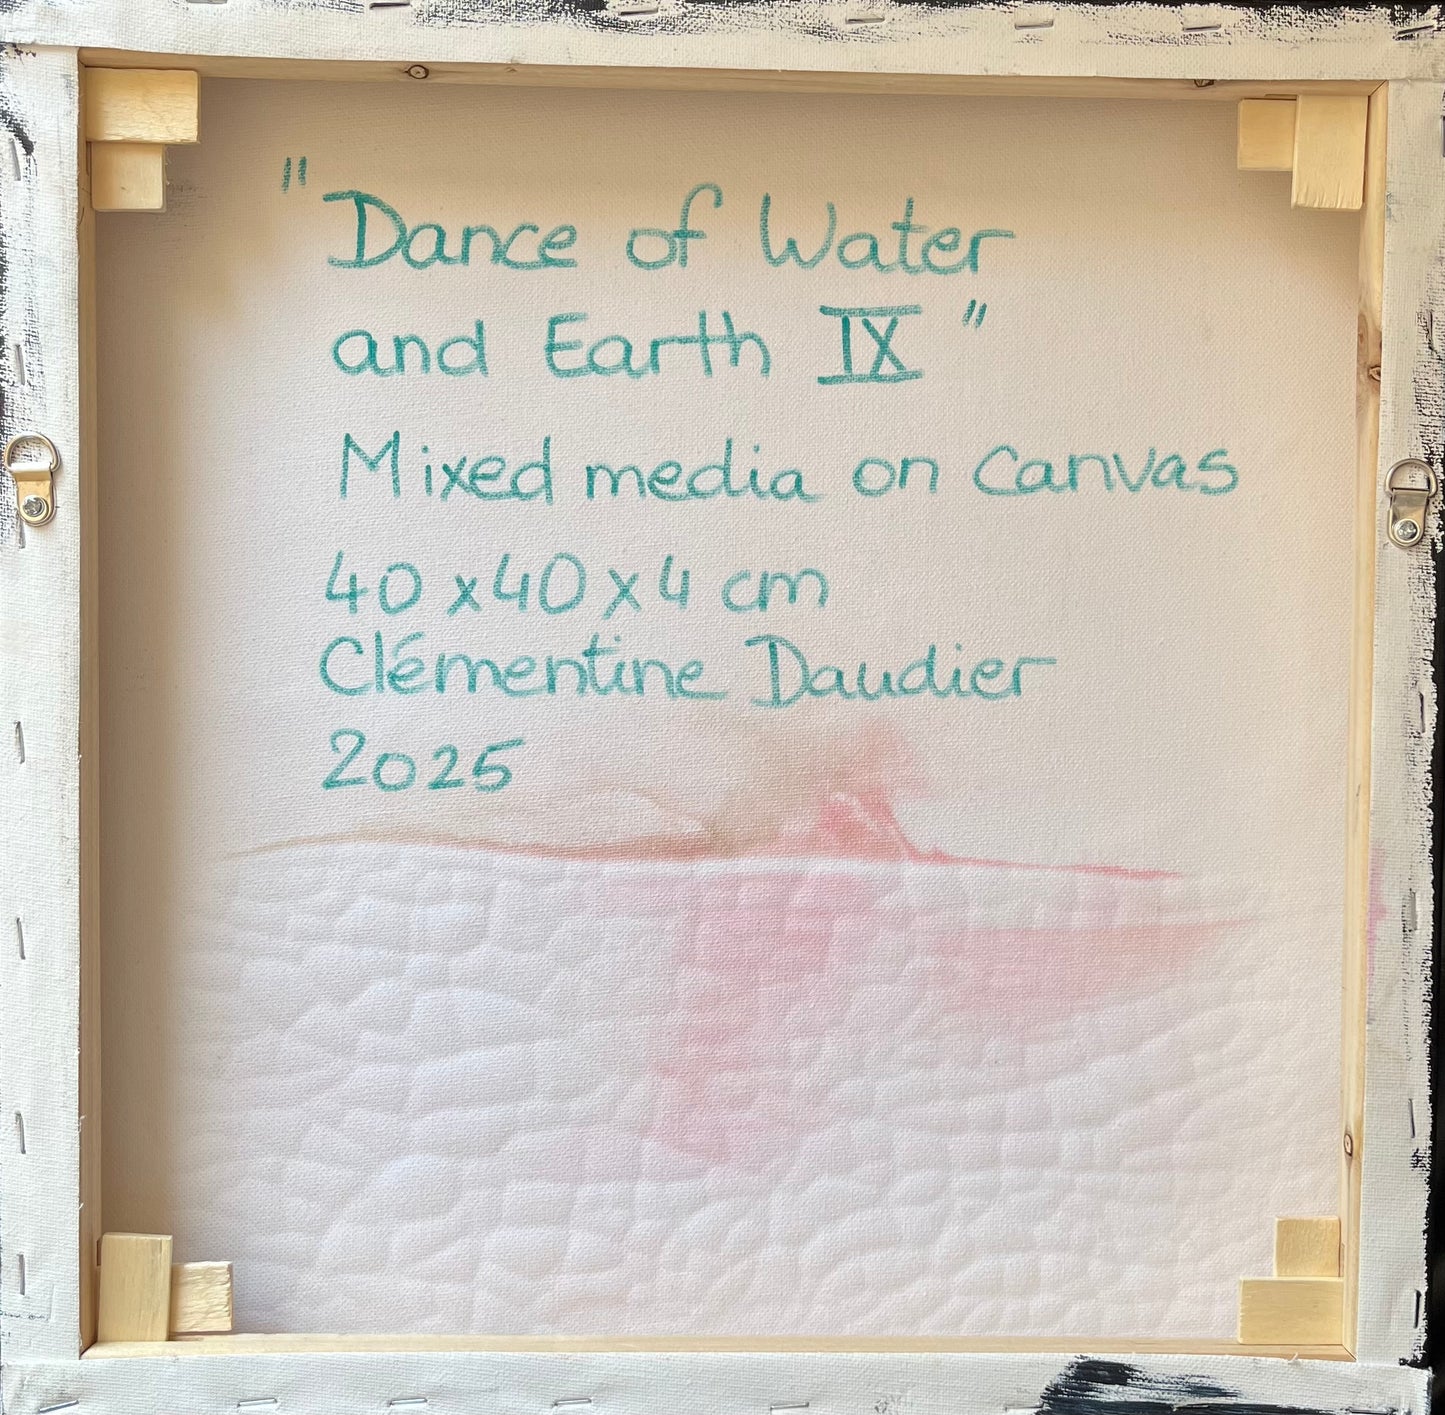 "Dance of Water
and Earth IX"
Mixed media on canvas
40 x 40 x 4 cm
Clémentine Daudier
2025